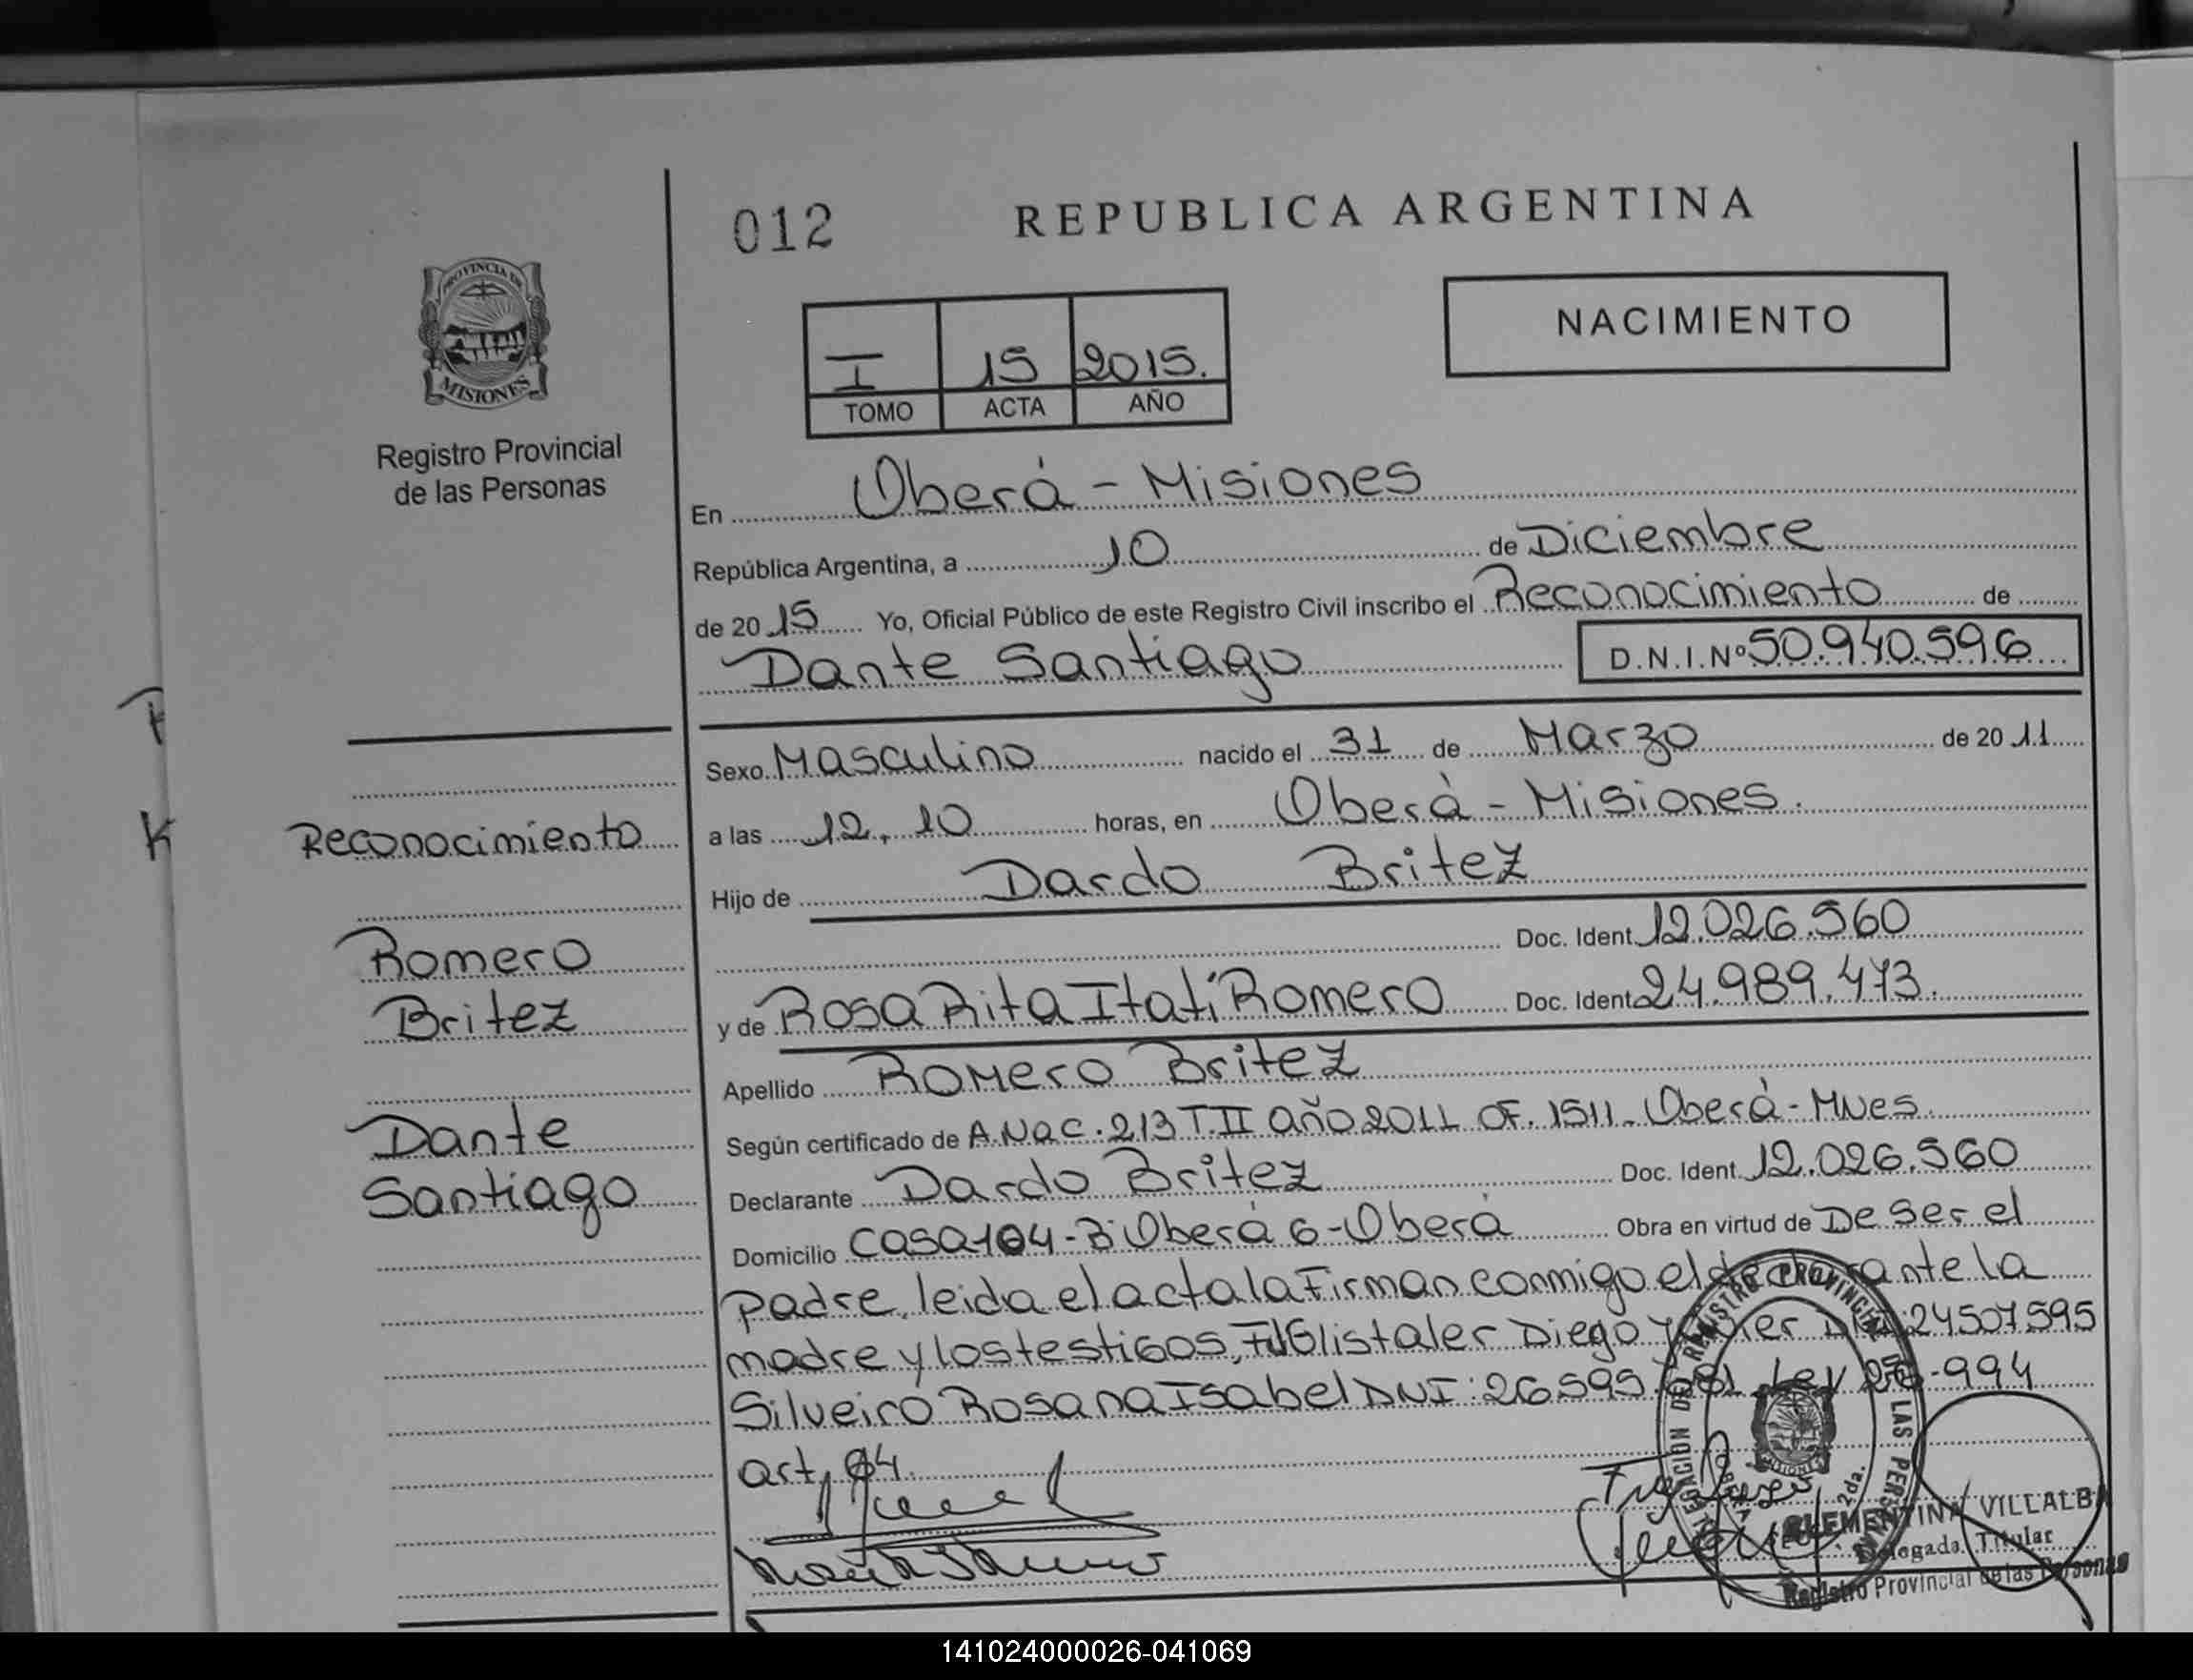 012
REPUBLICA ARGENTINA
PROVINCIA DE
MISIONES
Registro Provincial
de las Personas
I 15 2015.
TOMO ACTA AÑO
NACIMIENTO
En Oberá - Misiones
República Argentina, a 10 de Diciembre
de 2015 Yo, Oficial Público de este Registro Civil inscribo el Reconocimiento de
Dante Santiago D.N.I.Nº 50.940.596
Sexo Masculino nacido el 31 de Marzo de 2011
a las 12, 10 horas, en Oberá - Misiones.
Hijo de Dardo Britez
Doc. Ident. 12.026.560
y de Rosa Rita Itatí Romero Doc. Ident. 24.989.473.
Apellido Romero Britez
Según certificado de A.Nac. 213 T.II año 2011 OF. 1511 - Oberá - Mnes.
Declarante Dardo Britez Doc. Ident. 12.026.560
Domicilio Casa 104 - Bº Oberá 6 - Oberá Obra en virtud de De ser el
padre, leida el acta la firman conmigo el declarante la
madre y los testigos, Glistaler Diego DNI: 24507.595
Silveiro Rosana Isabel DNI: 26.595.681 Ley 26.994
art, 84.
Reconocimiento
Romero
Britez
Dante
Santiago
DELEGACION DEL REGISTRO PROVINCIAL DE LAS PERSONAS
OBERA
2da.
MISIONES
CLEMENTINA VILLALBA
Delegada Titular
Registro Provincial de las Personas
141024000026-041069